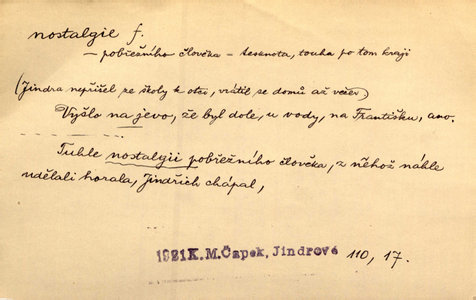 nostalgie f.
– pobřežního člověka – tesknota, touha po tom kraji
(Jindra nepřišel ze školy k otci, vrátil se domů až večer)
Vyšlo na jevo, že byl dole, u vody, na Františku, ano.
Tuhle nostalgii pobřežního člověka, z něhož náhle
udělali horala, Jindřich chápal,
1921 K. M. Čapek, Jindrové 110, 17.